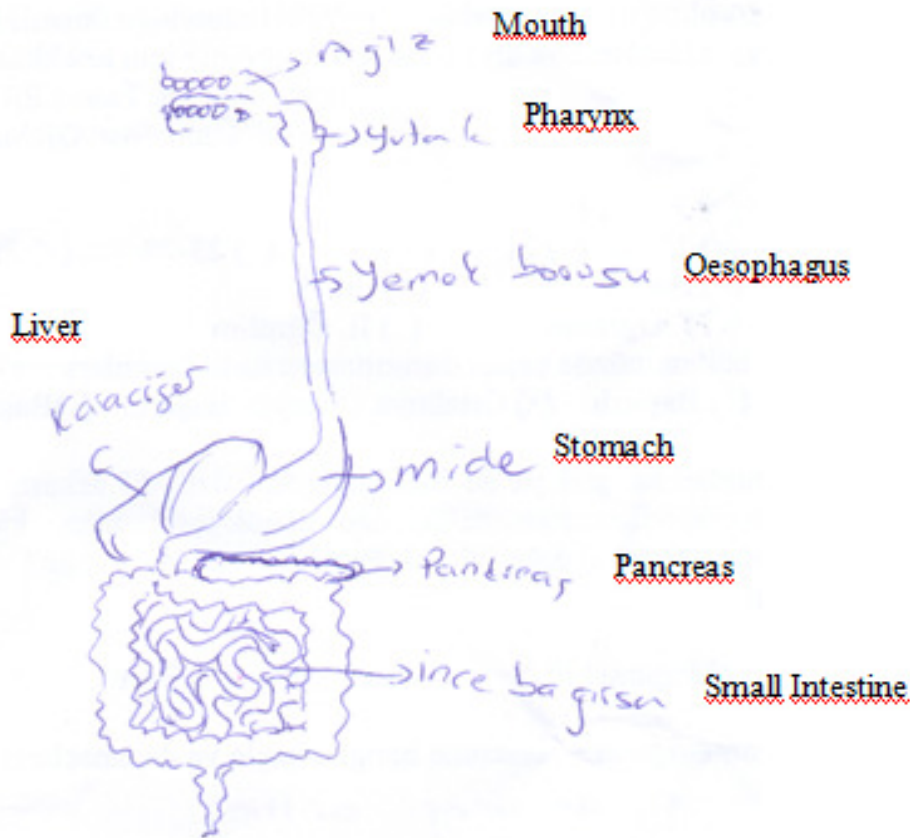 Mouth
Agiz
Pharynx
yutak
yemek boousu
Oesophagus
Liver
Karaciger
mide
Stomach
Pankreas
Pancreas
ince bagirsa
Small Intestine